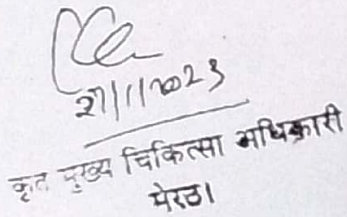 27/1/2023
कृत मुख्य चिकित्सा अधिकारी
मेरठ।